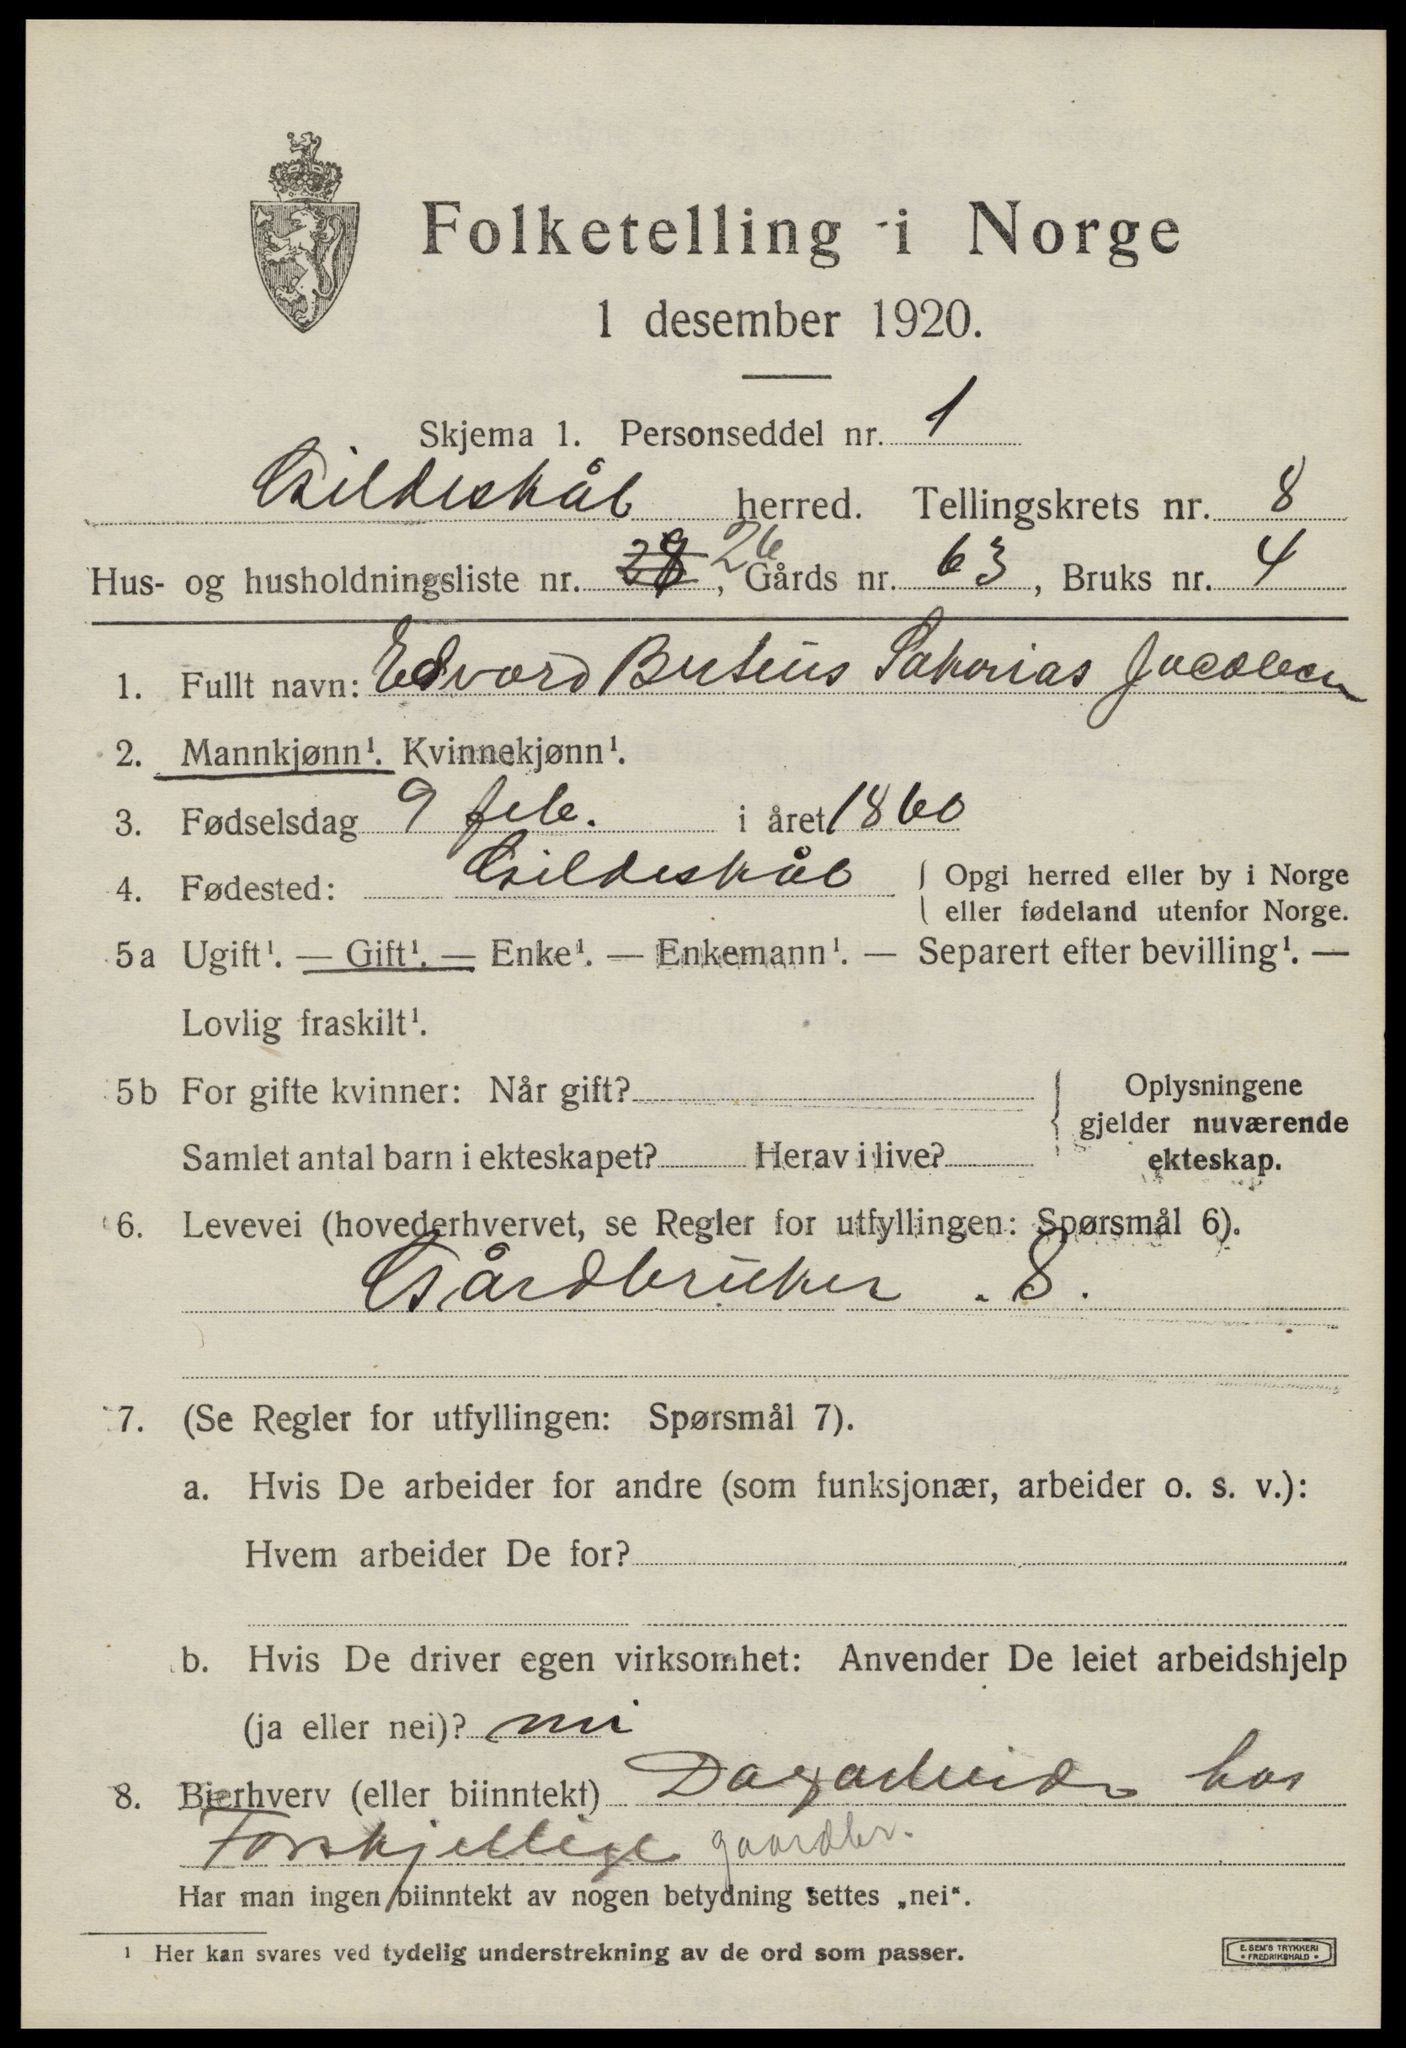 Folketelling i Norge
1 desember 1920.
Skjema 1. Personseddel nr. 1
Gildeskål herred. Tellingskrets nr. 8
Hus- og husholdningsliste nr. 26, Gårds nr. 63, Bruks nr. 4
1. Fullt navn: Edvard Sakarias Jacobsen
2. Mannkjønn¹. Kvinnekjønn¹.
3. Fødselsdag 9 feb. i året 1860
4. Fødested: Gildeskål { Opgi herred eller by i Norge
eller fødeland utenfor Norge.
5a Ugift¹. — Gift¹. — Enke¹. — Enkemann¹. — Separert efter bevilling¹. —
Lovlig fraskilt¹.
5b For gifte kvinner: Når gift? { Oplysningene
gjelder nuværende
Samlet antal barn i ekteskapet? Herav i live? ekteskap.
6. Levevei (hovederhvervet, se Regler for utfyllingen: Spørsmål 6).
Gårdbruker . S.
7. (Se Regler for utfyllingen: Spørsmål 7).
a. Hvis De arbeider for andre (som funksjonær, arbeider o. s. v.):
Hvem arbeider De for?
b. Hvis De driver egen virksomhet: Anvender De leiet arbeidshjelp
(ja eller nei)? nei
8. Bierhverv (eller biinntekt) Dagarbeide hos
Forskjellige gaardbr.
Har man ingen biinntekt av nogen betydning settes „nei“.
¹ Her kan svares ved tydelig understrekning av de ord som passer.
E. SEM'S TRYKKERI
• FREDRIKSHALD •